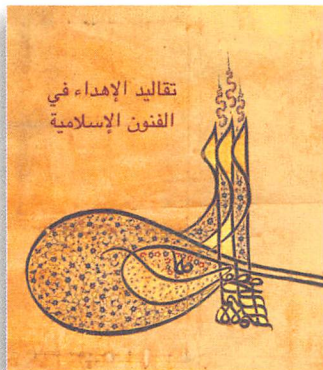 تقاليد الإهداء في
الفنون الإسلامية